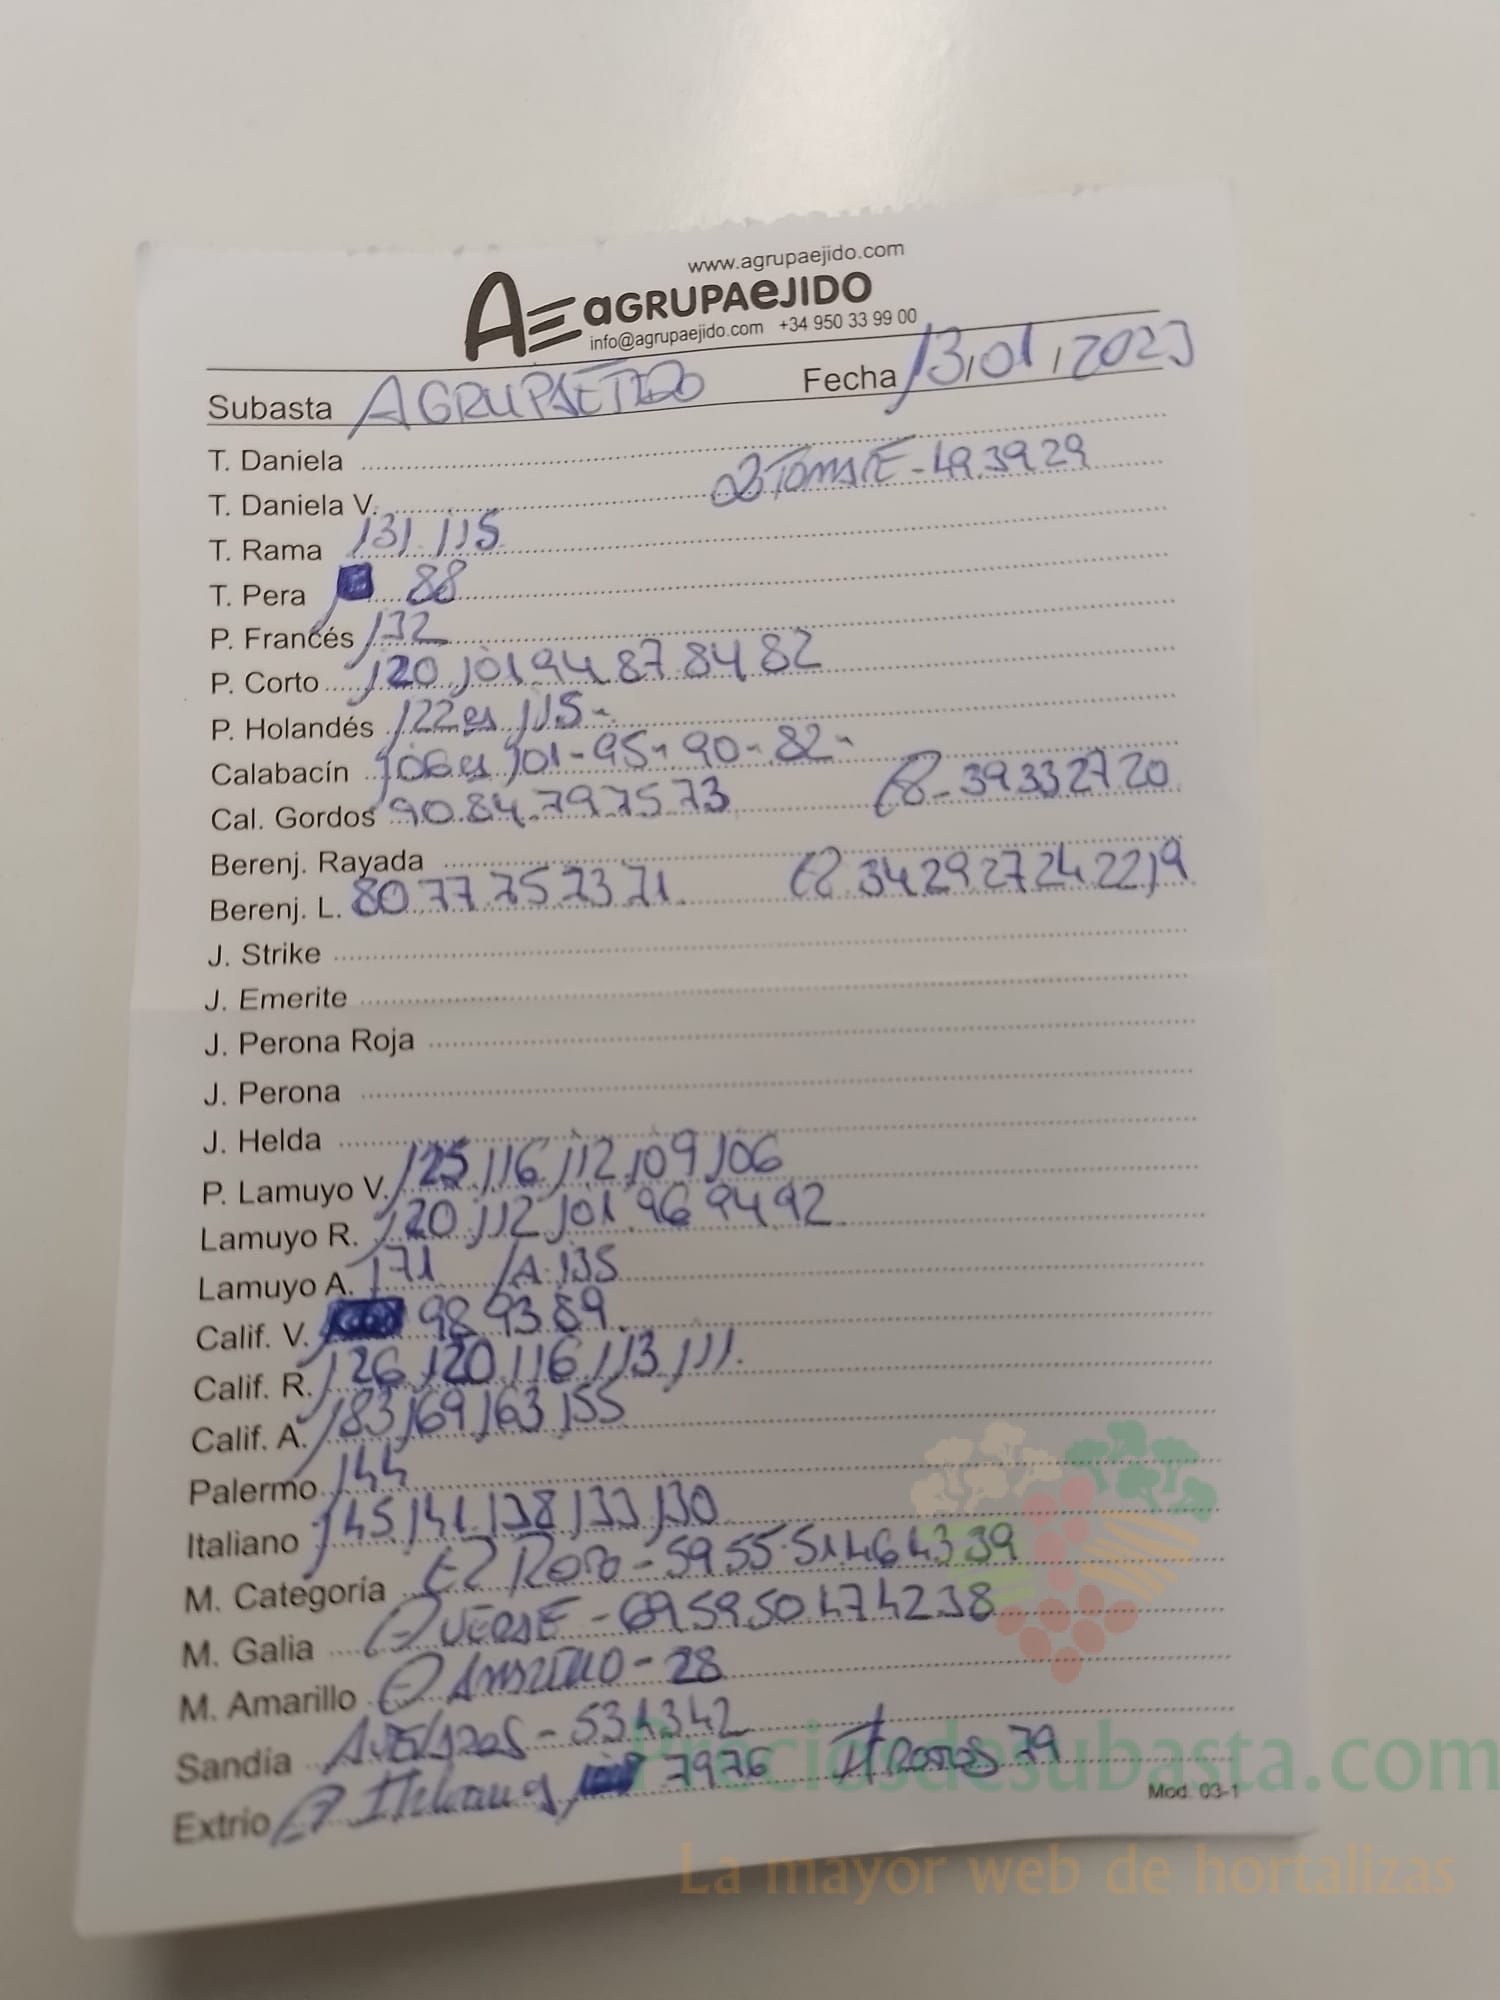 www.agrupaejido.com
AE aGRUPAeJIDO
info@agrupaejido.com +34 950 33 99 00
Subasta AGRUPAEJIDO Fecha 13,01,2023
T. Daniela
TOMATE - 49 39 29
T. Daniela V.
T. Rama 131 115
T. Pera 88
P. Francés 132
P. Corto 120 101 94 87 84 82
P. Holandés 122 es 115 -
Calabacín 106 es 101 - 95 - 90 - 82 -
Cal. Gordos 90 84 79 75 73 - 39 33 27 20
Berenj. Rayada
Berenj. L. 80 77 75 73 71. 34 29 27 24 22 19
J. Strike
J. Emerite
J. Perona Roja
J. Perona
J. Helda
P. Lamuyo V. 125 116 112 109 106
Lamuyo R. 120 112 101 96 94 92
Lamuyo A. 171 /A 135
Calif. V. 98 93 89.
Calif. R. 126 120 116 113 111.
Calif. A. 183 169 163 155
Palermo 144
Italiano 145 141 138 133 130
M. Categoría ROJO - 59 55 51 46 43 39
M. Galia VERDE - 69 59 50 47 42 38
M. Amarillo AMARILLO - 28
Sandía - 53 43 42
Extrio 79 76 79
Mod. 03-1
Preciosdesubasta.com
La mayor web de hortalizas